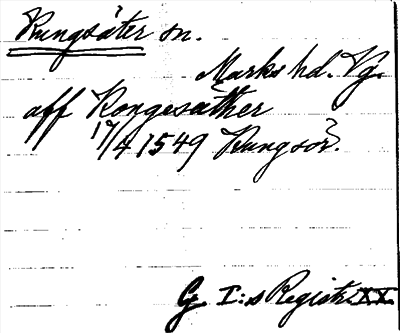 Kungsäter sn.
Marks hd. Vg.
aff Kongesäther
17/4 1549 Kungsör.
G I:s Registr. XX.